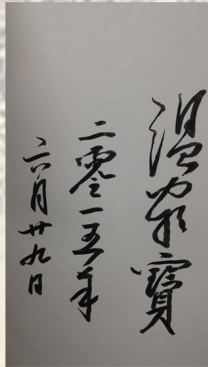 温家寶
二零一五年
六月廿九日